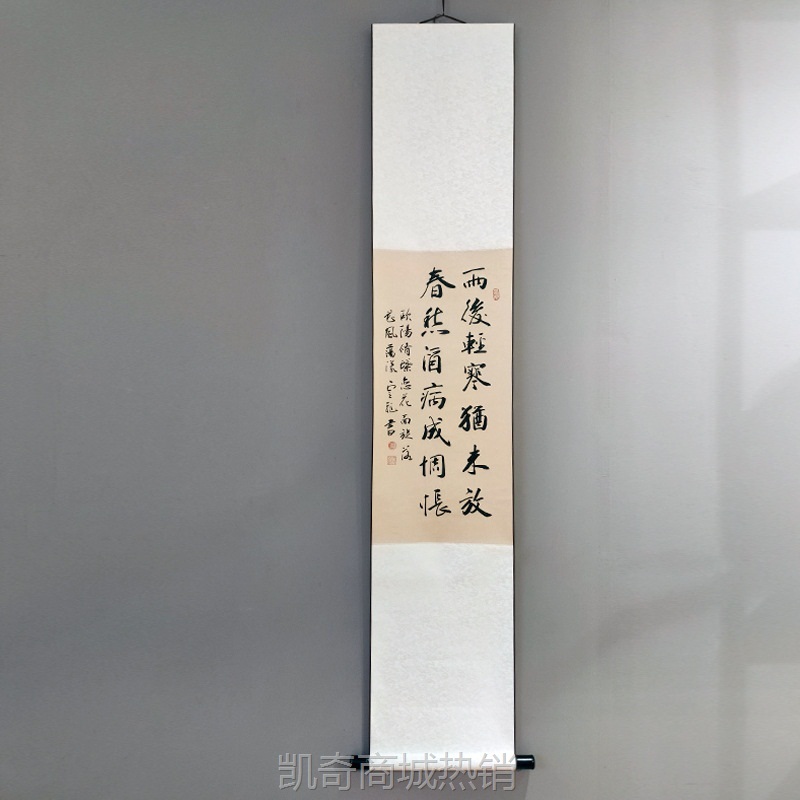 雨後輕寒猶未放
春愁酒病成惆悵
歐陽脩蝶戀花面旋落
花風蕩漾 書
凯奇商城热销